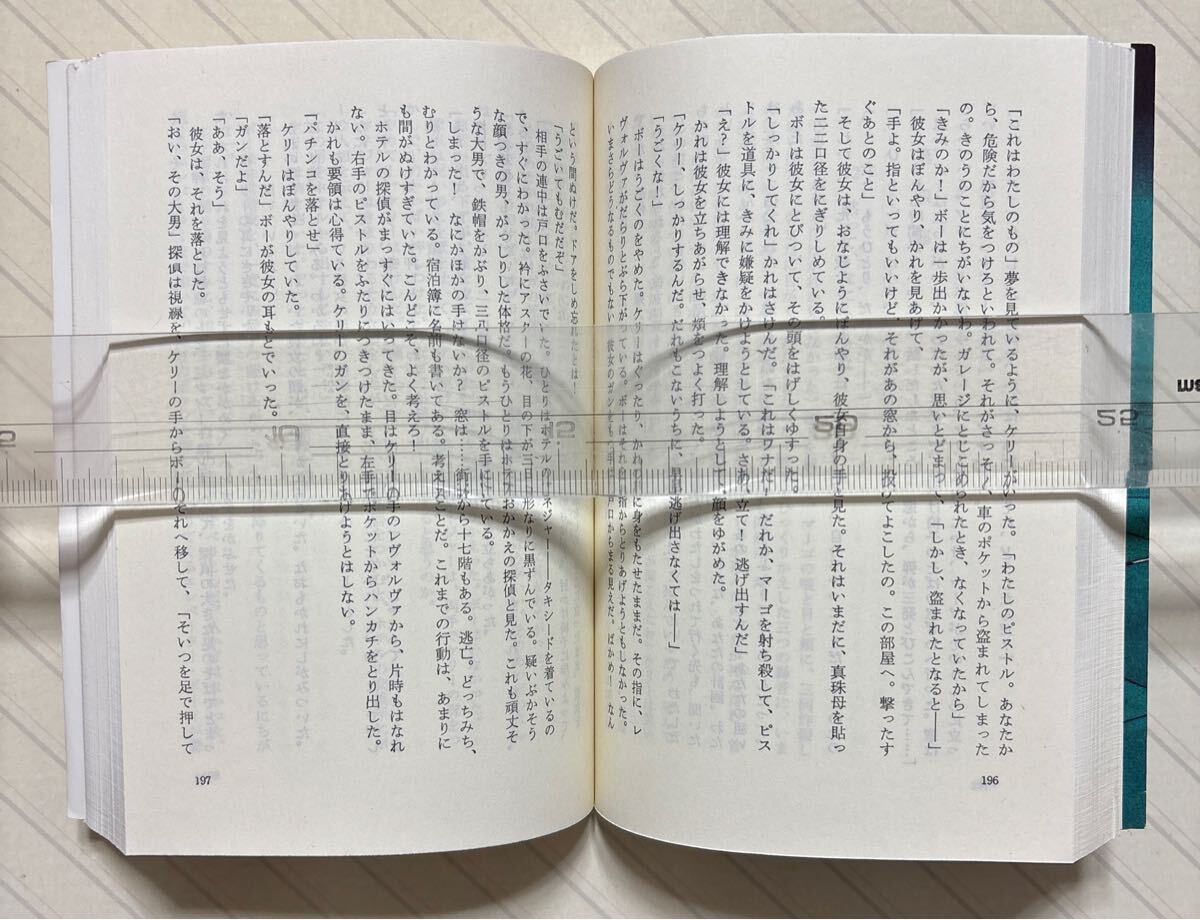 「これはわたしのもの」夢を見ているように、ケリーがいった。「わたしのピストル。あなたか
ら、危険だから気をつけろといわれて。それがさっそく、車のポケットから盗まれてしまった
の。きのうのことにちがいないわ。ガレージにとじこめられたとき、なくなっていたから」
「きみのか！」ボーは一歩出かかったが、思いとどまって、「しかし、盗まれたとなると――」
彼女はぼんやりかれを見あげて、
「手よ。指といってもいいけど、それがあの窓から、投げてよこしたの。この部屋へ。撃ったす
ぐあとのこと」
そして彼女は、おなじようにぼんやり、彼女自身の手を見た。それはいまだに、真珠母を貼っ
た二二口径をにぎりしめている。
ボーは彼女にとびついて、その頭をはげしくゆすった。
「しっかりしてくれ」かれはさけんだ。「これはワナだ！ だれか、マーゴを射ち殺して、ピス
トルを道具に、きみに嫌疑をかけようとしている。さあ、立て！ 逃げ出すんだ」
「え？」彼女には理解できなかった。理解しようとして、顔をゆがめた。
かれは彼女を立ちあがらせ、頬をつよく打った。
「ケリー、しっかりするんだ。だれもこないうちに、早く逃げ出さなくては――」
「うごくな！」
ボーはうごくのをやめた。ケリーはぐったり、かれの手に身をもたせたままだ。その指に、レ
ヴォルヴァがだらりとぶら下がっている。ボーはそれを、指からとりあげようともしなかった。
いまさらどうなるものでもない。彼女のガンをもつ手は、戸口からまる見えだ。ばかめ！ なん
196
という間ぬけだ。ドアをしめ忘れたとは！
「うごいてもむだだぞ」
相手の連中は戸口をふさいでいた。ひとりはホテルのマネジャー――タキシードを着ているの
で、すぐにわかった。衿にアスターの花、目の下が三日月形なりに黒ずんでいる。疑いぶかそう
な顔つきの男、がっしりした体格だ。もうひとりはホテルおかかえの探偵と見た。これも頑丈そ
うな大男で、鉄帽をかぶり、三八口径のピストルを手にしている。
しまった！ なにかほかの手はないか？ 窓は……街路から十七階もある。逃亡。どっちみち、
むりとわかっている。宿泊簿に名前も書いてある。考えることだ。これまでの行動は、あまりに
も間がぬけすぎていた。こんどこそ、よく考えろ！
ホテルの探偵がまっすぐにはいってきた。目はケリーの手のレヴォルヴァから、片時もはなれ
ない。右手のピストルをふたりにつきつけたまま、左手でポケットからハンカチをとり出した。
かれも要領は心得ている。ケリーのガンを、直接とりあげようとはしない。
「パチンコを落とせ」
ケリーはぼんやりしていた。
「落とすんだ」ボーが彼女の耳もとでいった。
「ガンだよ」
「ああ、そう」
彼女は、それを落とした。
「おい、その大男」探偵は視線を、ケリーの手からボーのそれへ移して、「そいつを足で押して
197